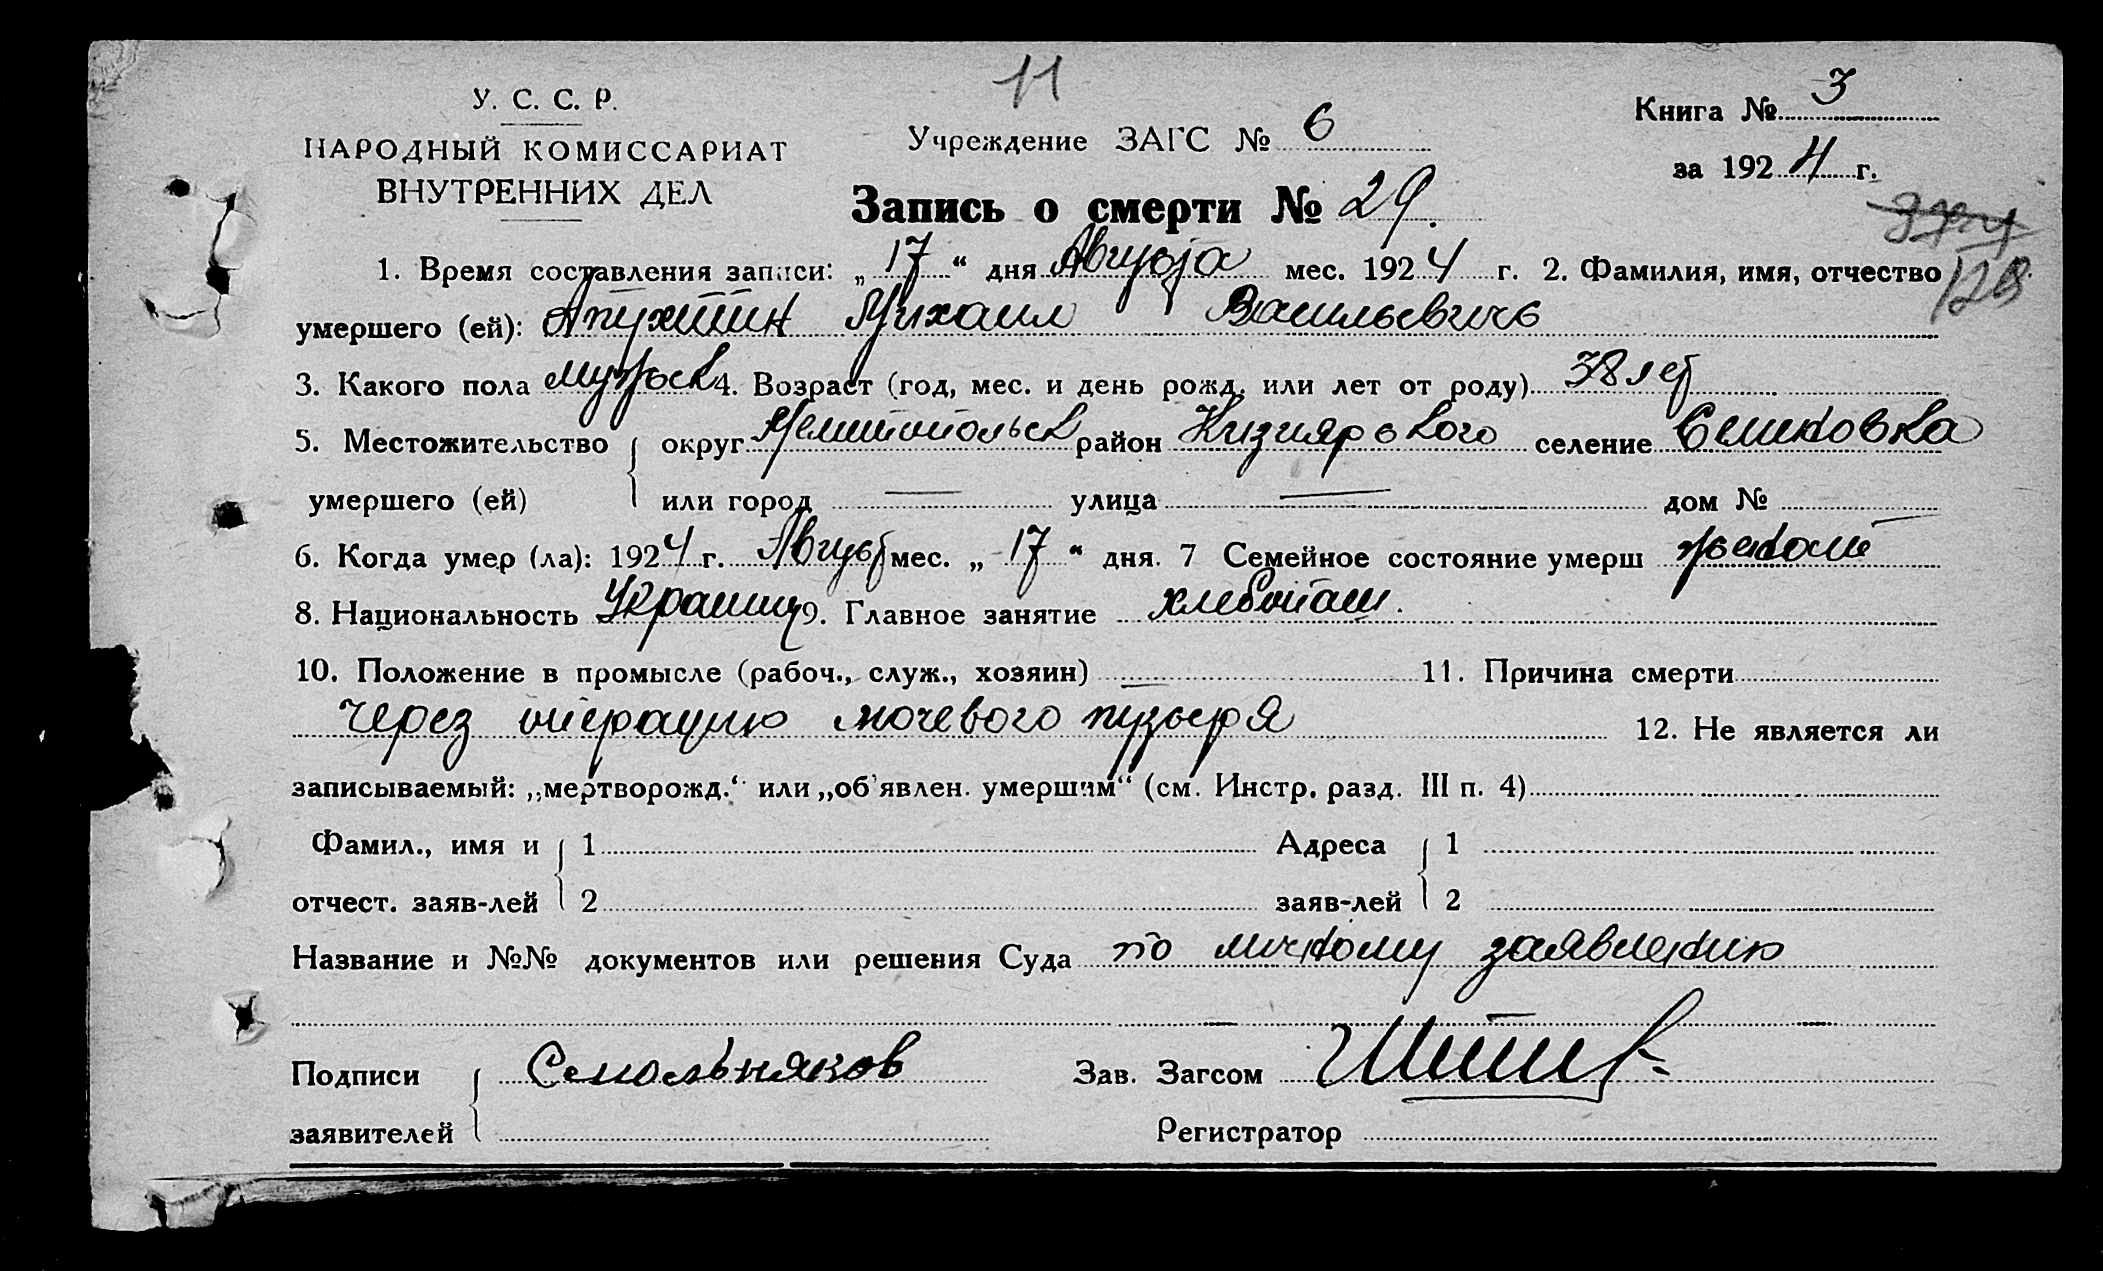 11
У. С. С. Р.
НАРОДНЫЙ КОМИССАРИАТ
ВНУТРЕННИХ ДЕЛ
Учреждение ЗАГС № 6
Книга № 3
за 1924 г.
Запись о смерти № 29.
128
1. Время составления записи: „17“ дня Августа мес. 1924 г. 2. Фамилия, имя, отчество
умершего (ей): Апухтин Михаил Васильевичь
3. Какого пола мужеск 4. Возраст (год, мес. и день рожд. или лет от роду) 38 лет
5. Местожительство округ Мелитопольск район Кизиярского селение Семиковка
умершего (ей) или город — улица — дом № —
6. Когда умер (ла): 1924 г. Август мес. „17“ дня. 7 Семейное состояние умерш женат
8. Национальность Украинц 9. Главное занятие хлебопаш.
10. Положение в промысле (рабоч., служ., хозяин) — 11. Причина смерти
через операцию мочевого пузыря 12. Не является ли
записываемый: „мертворожд.“ или „об'явлен. умершим“ (см. Инстр. разд. III п. 4)
Фамил., имя и 1 Адреса 1
отчест. заяв-лей 2 заяв-лей 2
Название и №№ документов или решения Суда по личному заявлению
Подписи Смольняков Зав. Загсом
заявителей Регистратор